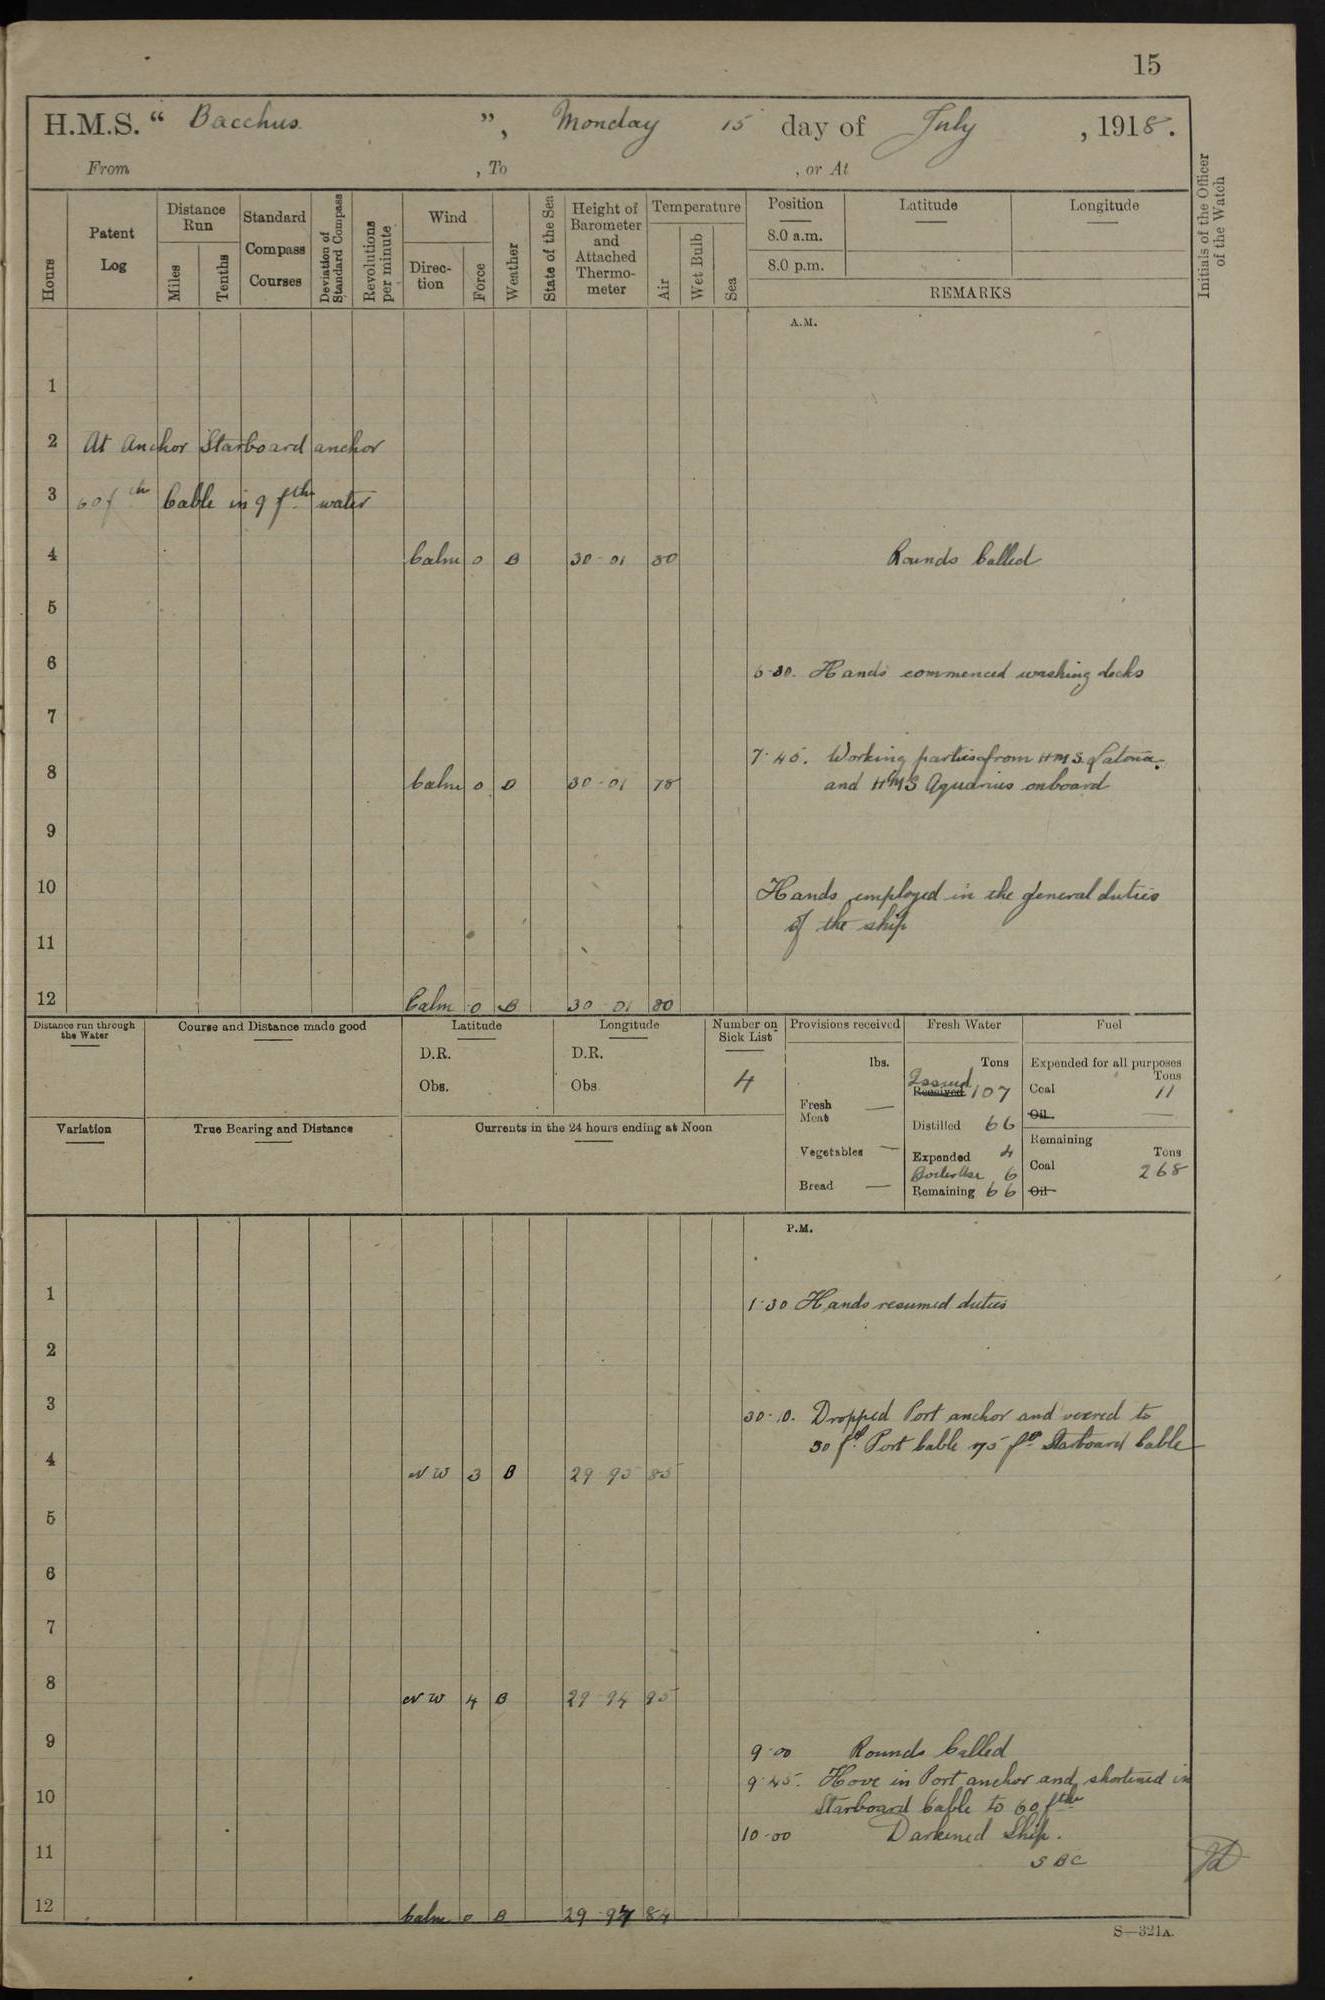 15
H.M.S. “ Bacchus ”, Monday 15 day of July, 1918.
From , To , or At
Hours
Patent Log
Distance Run
Miles
Tenths
Standard Compass Courses
Deviation of Standard Compass
Revolutions per minute
Wind
Direction
Force
Weather
State of the Sea
Height of Barometer and Attached Thermometer
Temperature
Air
Wet Bulb
Sea
Position
8.0 a.m.
8.0 p.m.
Latitude
Longitude
REMARKS
Initials of the Officer of the Watch
A.M.
1
2 At Anchor Starboard anchor
3 60 fth Cable in 9 fths water
4 Calm 0 B 30-01 80 Rounds Called
5
6 6-30. Hands commenced washing decks
7
7-45. Working parties from HMS Latona
8 Calm 0 B 30-01 78 and HMS Aquarius onboard
9
10 Hands employed in the general duties
of the ship
11
12 Calm 0 B 30 01 80
Distance run through the Water
Course and Distance made good
Latitude
D.R.
Obs.
Longitude
D.R.
Obs.
Number on Sick List
4
Provisions received
lbs.
Fresh Meat —
Vegetables —
Bread —
Fresh Water
Tons
Issued
Received 107
Distilled 66
Expended 4
Boiler Use 6
Remaining 66
Fuel
Expended for all purposes
Tons
Coal 11
Oil —
Remaining
Tons
Coal 268
Oil
Variation
True Bearing and Distance
Currents in the 24 hours ending at Noon
P.M.
1 1-30 Hands resumed duties
2
3 Dropped Port anchor and veered to
30 fth Port Cable 75 fth Starboard Cable
4 NW 3 B 29 95 85
5
6
7
8 NW 4 B 29 94 85
9 9-00 Rounds Called
9-45. Hove in Port anchor and shortened in
10 Starboard Cable to 60 fths
10-00 Darkened Ship.
11 SBC
12 Calm 0 B 29 94 84
S—321A.